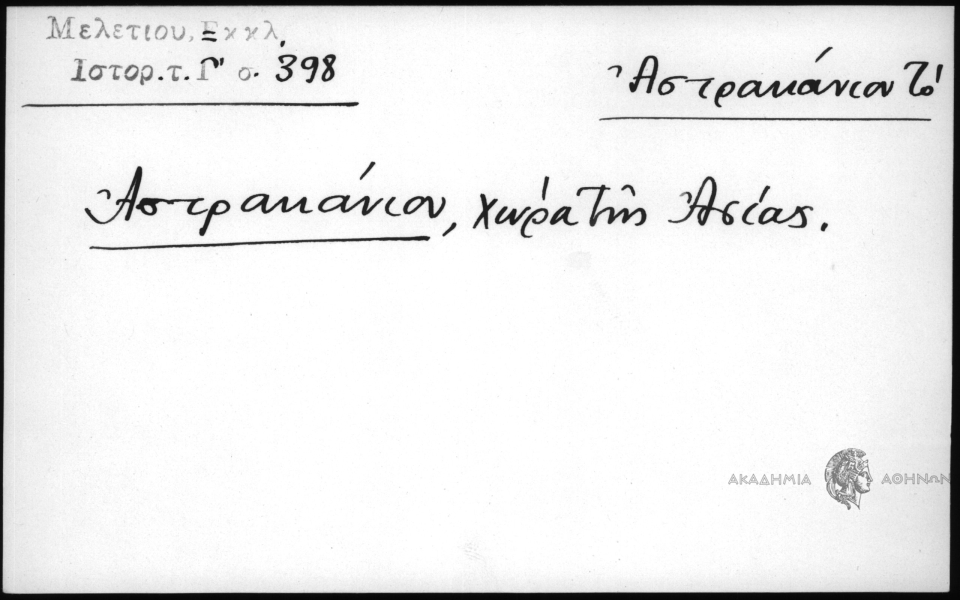 Μελετίου, Εκκλ.
Ιστορ. τ. Γ' σ. 398
Ἀστρακάνιον Τό
Ἀστρακάνιον, χώρα τῆς Ἀσίας.
ΑΚΑΔΗΜΙΑ ΑΘΗΝΩΝ